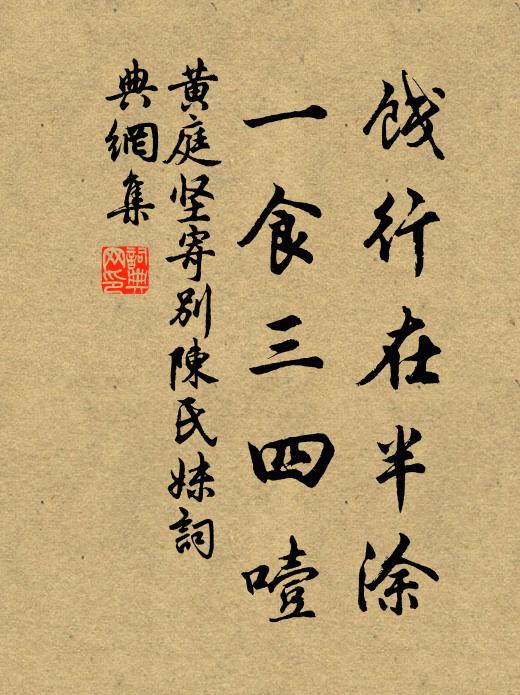 饯行在半涂
一食三四噎
黄庭坚寄别陳氏妹詞
典網集
詞典
网印